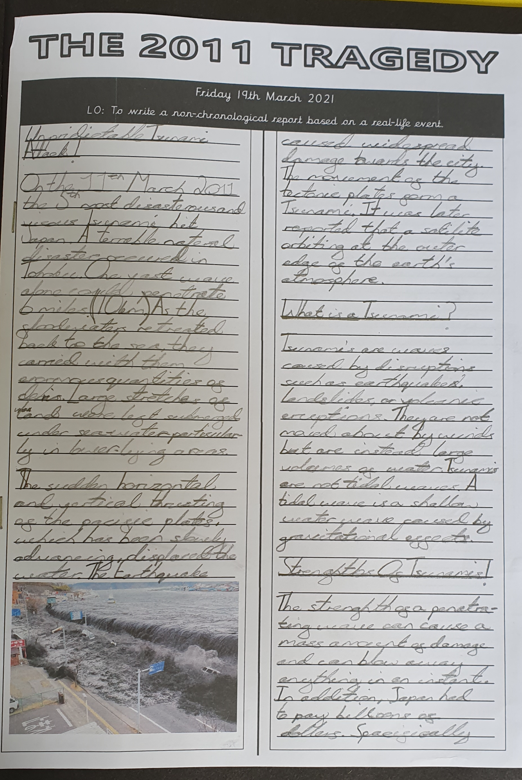 THE 2011 TRAGEDY
Friday 19th March 2021
LO: To write a non-chronological report based on a real-life event.
Unpridictable Tsunami
Attack!
On the 11th March 2011
the 5th most disasterous and
vicous Tsunami hit
Japan. A terrable nateral
disaster occured in
Tohoku. One vast wave
alone could penetrate
6 miles (10km) As the
floodwater retreated
back to the sea, they
carried with them
enormous quantities of
debris. Large stretches of
land were left submerged
under seawater particular-
ly in lower-lying areas.
The sudden horizontal
and vertical thrusting
of the pacific plates,
which has been slowly
advancing displaced the
water. The Earthquake
caused widespread
damage towards the city.
The movement of the
tectonic plates form a
Tsunami. It was later
reported that a satilite
orbiting at the outer
edge of the earth's
atmosphere.
What is a Tsunami?
Tsunami's are waves
caused by disruptions
such as earthquakes,
landslides, or volcanic
eruptions. They are not
made about by winds
but are instead large
volumes of water Tsunamis
are not tidal waves. A
tidal wave is a shallow
water wave caused by
gravitational effects.
Strenghths Of Tsunamis!
The strenghth of a penetra-
ting wave can cause a
mass amount of damage
and can blow away
anything in an instant.
In addition, Japan had
to pay billions of
dollars. Spacifically